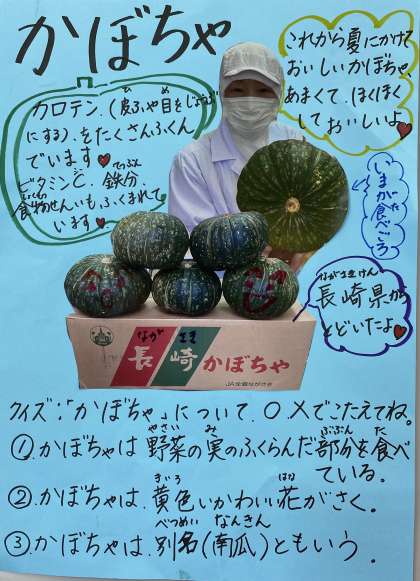 かぼちゃ
これから夏にかけて
おいしいかぼちゃ
あまくて、ほくほく
しておいしいよ♥
カロテン、(皮ふや目をじょうぶ
にする)、をたくさんふくん
でいます♥
ビタミンC、鉄分、
食物せんいもふくまれて
います♥
いまが食べごろ
長崎県から
とどいたよ♥
長崎かぼちゃ
JA全農ながさき
クイズ:「かぼちゃ」について ○×でこたえてね。
①.かぼちゃは 野菜の実のふくらんだ部分を食べ
ている。
②.かぼちゃは、黄色いかわいい花がさく。
③.かぼちゃは、別名(南瓜)ともいう。